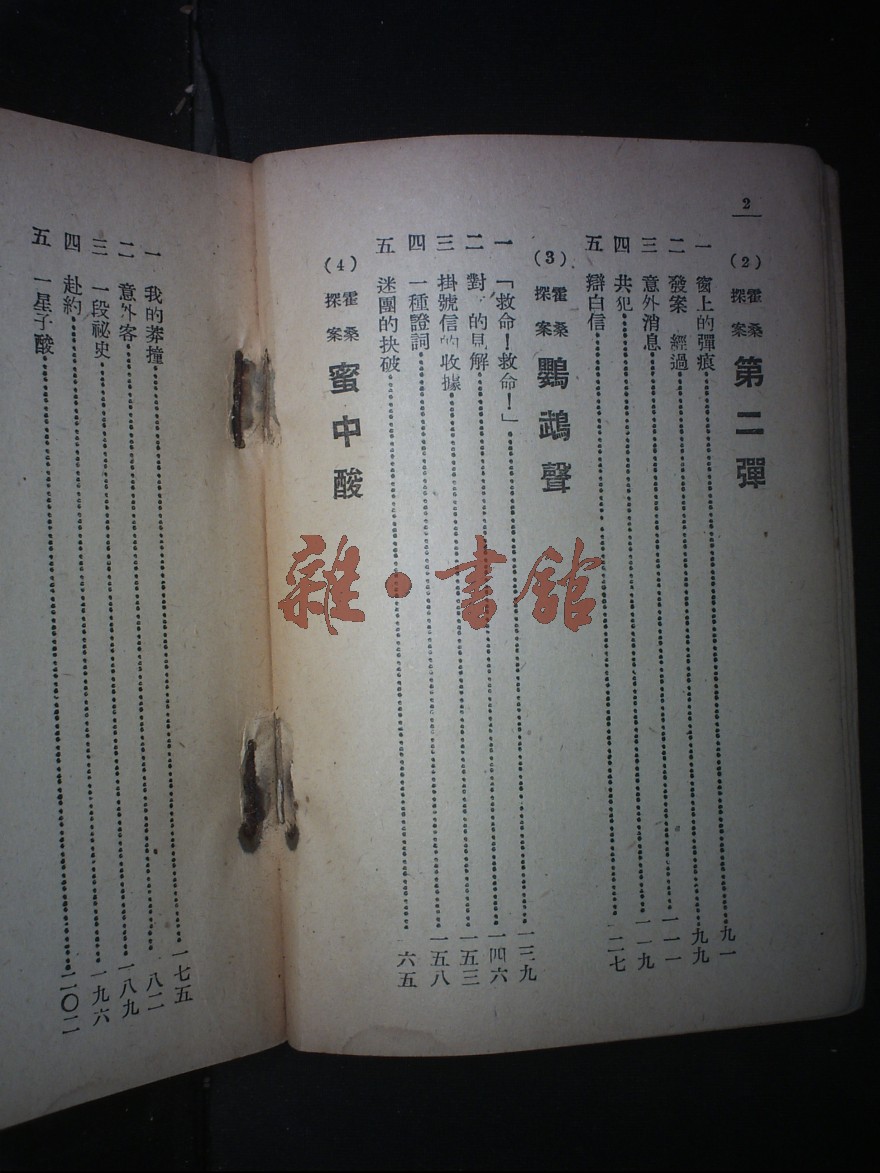 2
(2) 霍桑探案 第二彈
一 窗上的彈痕 九一
二 發案 經過 九九
三 意外消息 一一一
四 共犯 一一九
五 辯白信 一二七
(3) 霍桑探案 鸚鵡聲
一 「救命!救命!」 一三九
二 對 的見解 一四六
三 掛號信的收據 一五三
四 一種證詞 一五八
五 迷團的抉破 六五
(4) 霍桑探案 蜜中酸
一 我的莽撞 一七五
二 意外客 八二
三 一段祕史 一八九
四 赴約 一九六
五 一星子酸 二〇二
雜·書館